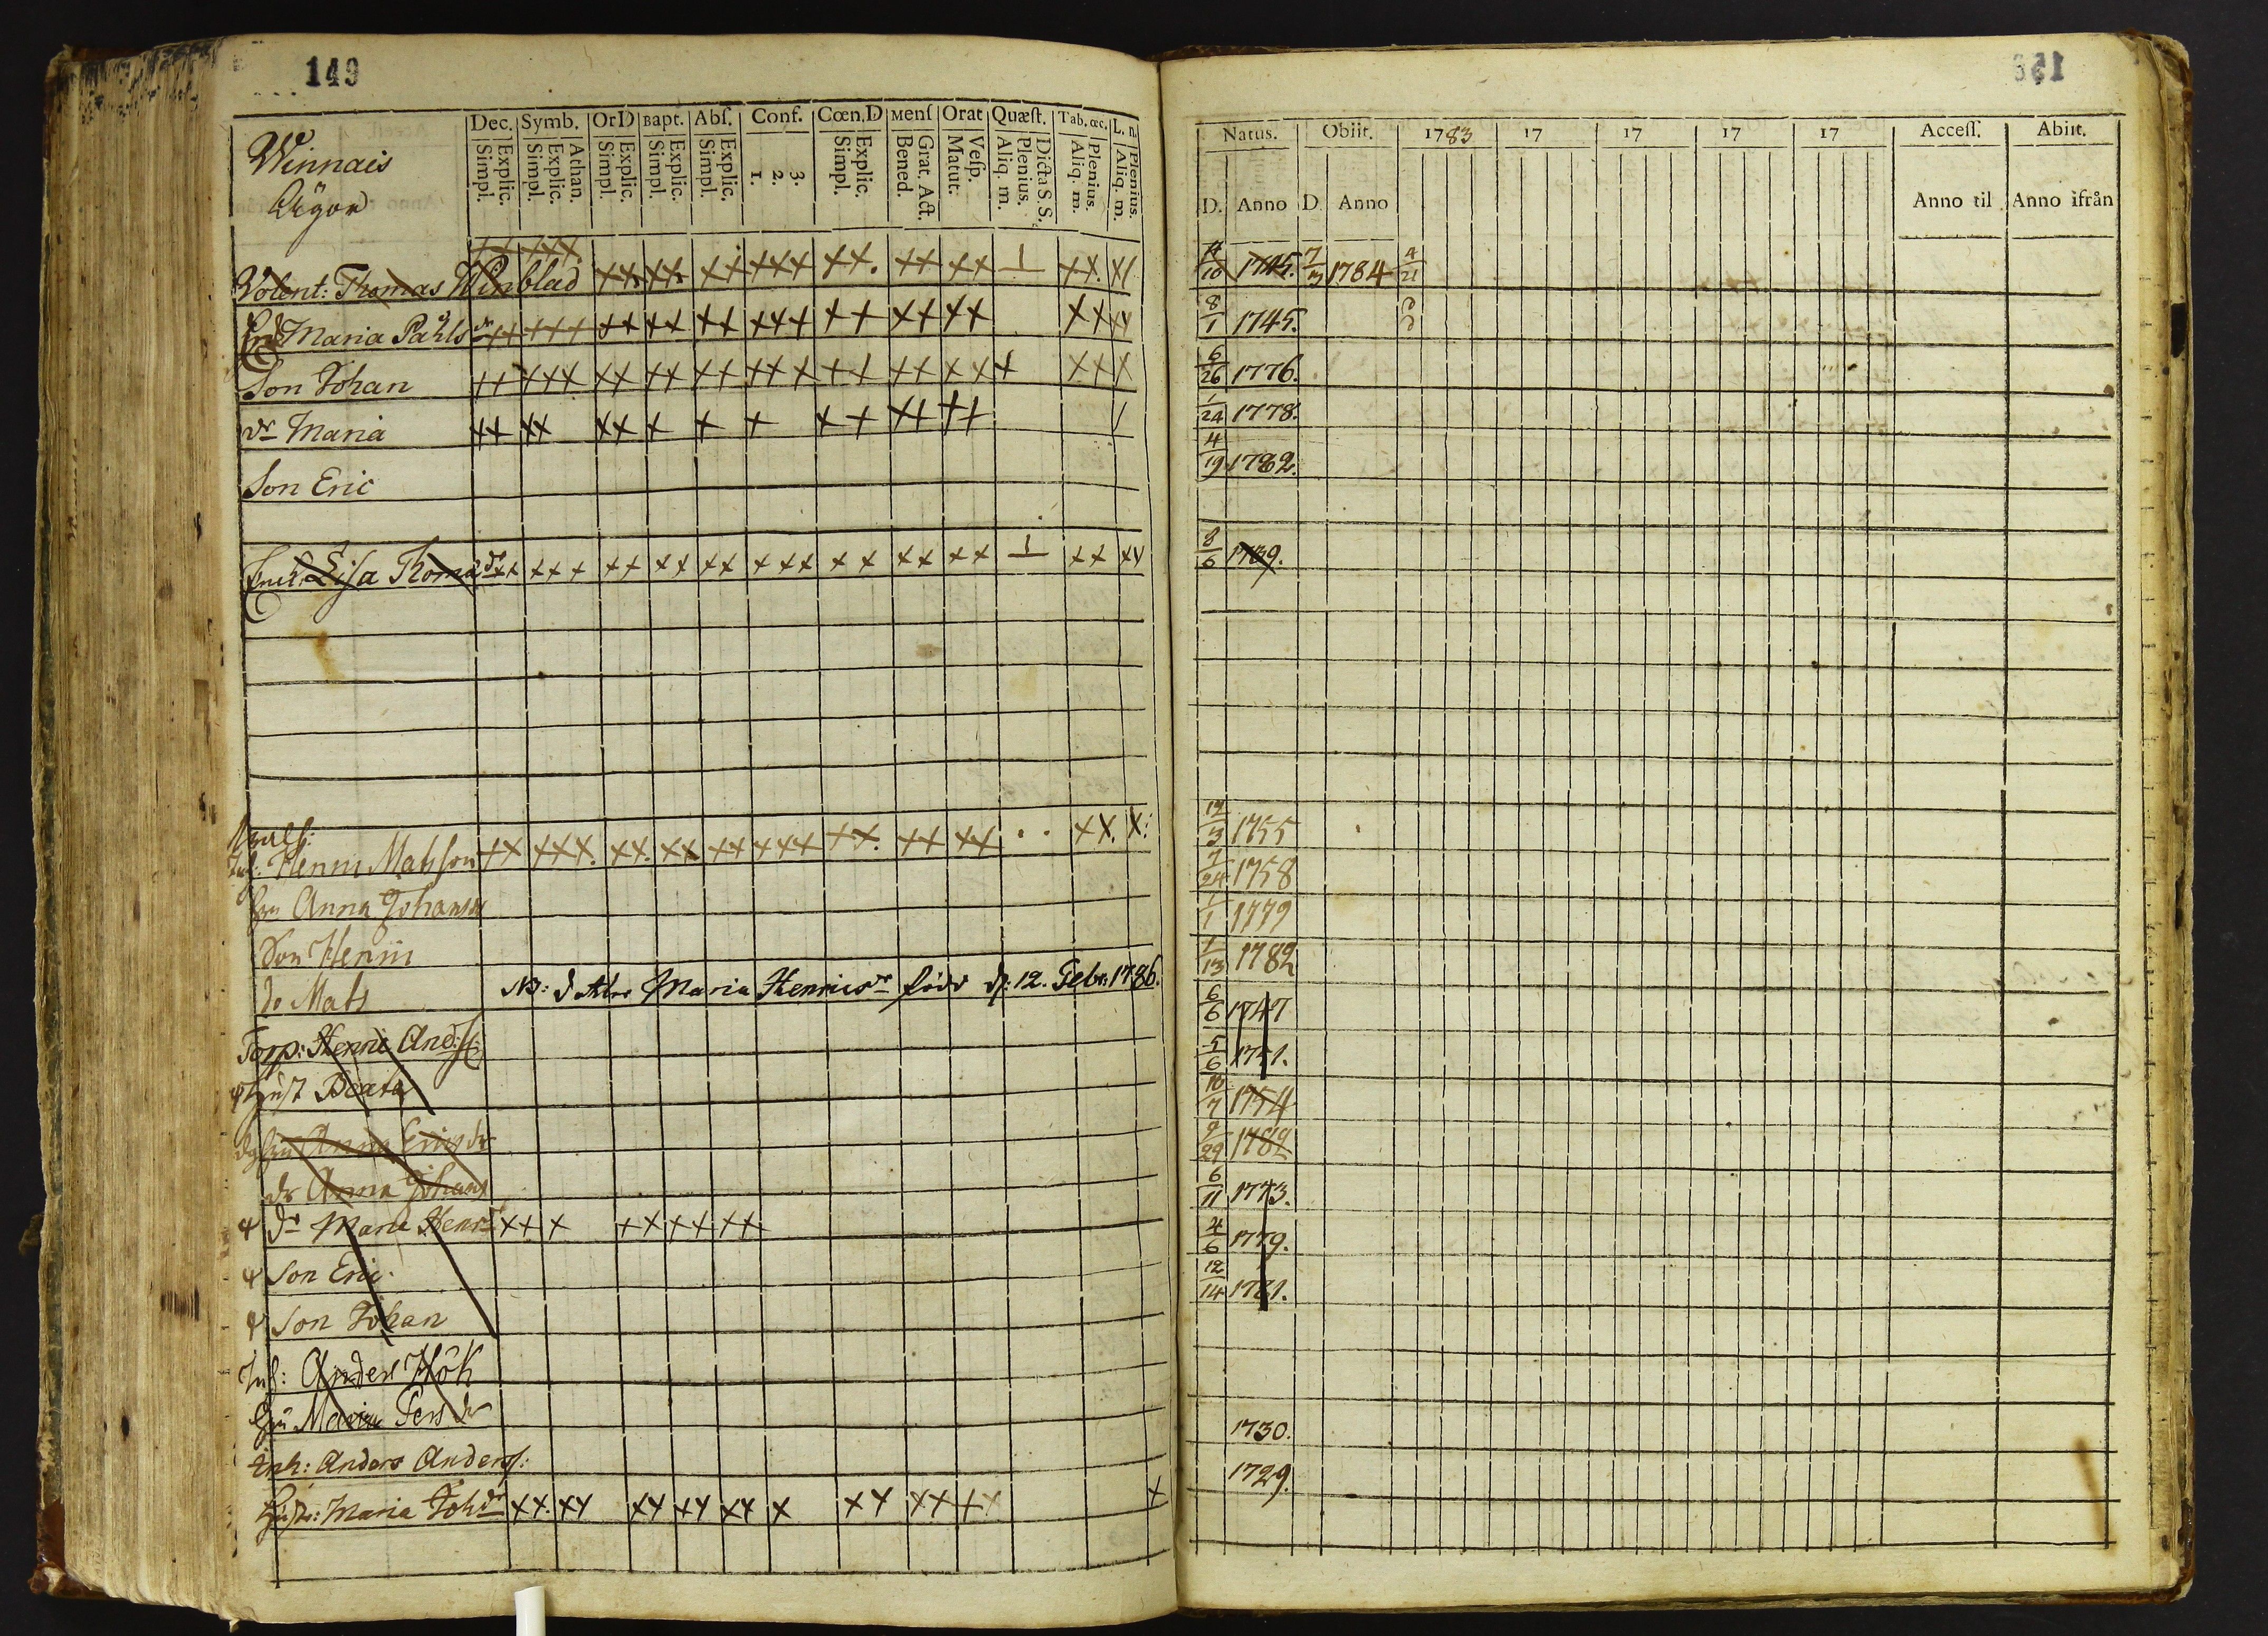 149
Dec. Symb. Or D Bapt. Abſ. Conf. Cœn.D Menſ Orat Quæſt. Tab. œc. L. n.
Simpl. Explic. Simpl. Explic. Athan. Simpl. Explic. Simpl. Explic. Simpl. Explic. 1. 2. 3. Simpl. Explic. Bened. Grat. Act. Matut. Veſp. Aliq. m. Plenius. Dicta S. S. Aliq. m. Plenius. Aliq. m. Plenius.
Winnais
Ägor
Volent: Thomas Winblad
Maria Påhls dr
Son Johan
dr Maria
Son Eric
Enck. Lisa Thomas dr
Henric Matsson
Hru Anna Johans
Son Henric
do Mats
NB: dotter Maria Henrics dr född d: 12. Febr: 1786.
Torp: Henric And:s
Hust Beata
Anna Erics dr
dr Anna Johans
dr Maria Henrs
Son Eric
Son Johan
Inh: Anders Hök
Hru Maria Pers dr
Inh: Anders Anders:
Hustr: Maria Joh dr
Natus. Obiit. 1783 17 17 17 17 Acceſſ. Abiit.
D. Anno D. Anno Anno til Anno ifrån
11/10 1745. 7/3 1784 4/21
8/1 1745.
6/26 1776.
1/24 1778.
4/19 1782.
8/6 1739.
12/3 1755
7/24 1758
1/1 1779
1/13 1782
6/6 1747
5/6 1751.
10/7 1754
9/29 1782
6/11 1773.
4/6 1779.
12/14 1781.
1730.
1729.